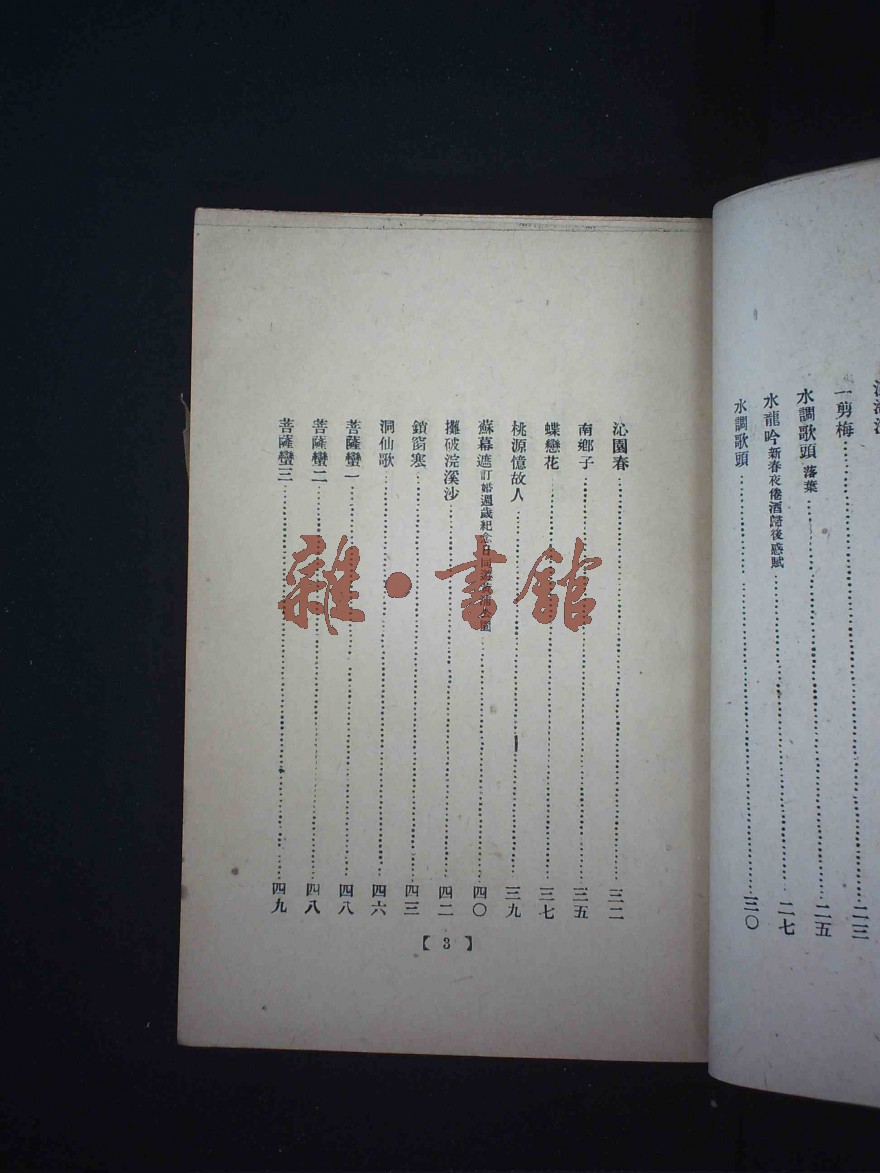 一剪梅……二三
水調歌頭 落葉……二五
水龍吟 新春夜倦酒歸後惑賦……二七
水調歌頭……三〇
沁園春……三二
南鄉子……三五
蝶戀花……三七
桃源憶故人……三九
蘇幕遮 訂婚週歲紀念日同遊 公園……四〇
攤破浣溪沙……四二
鎖窗寒……四三
洞仙歌……四六
菩薩蠻一……四八
菩薩蠻二……四八
菩薩蠻三……四九
【3】
雜·書館